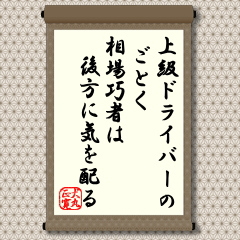 上級ドライバーの
ごとく
相場巧者は
後方に気を配る